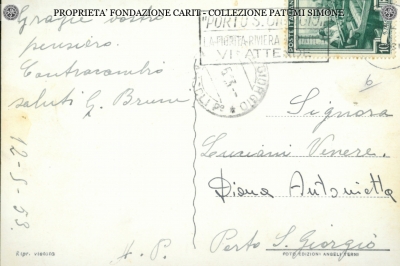 PROPRIETA' FONDAZIONE CARIT - COLLEZIONE PATUMI SIMONE
Grazie vostro
pensiero.
Contraccambio
saluti G. Bruni
12-5-53.
A. P.
"PORTO S. GIORGIO"
LA FIORITA RIVIERA
VI ATTENDE
10
6
Signora
Luciani Venere.
Diana Antonietta
Porto S. Giorgio
Ripr. vietata
FOTO EDIZIONI ANGELI TERNI